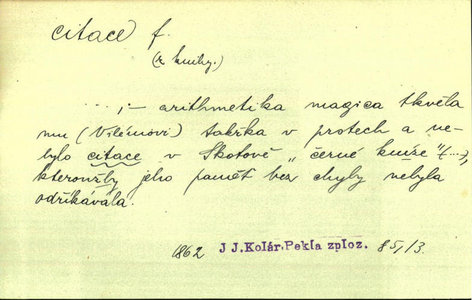 citace f.
(z knihy.)
...,- arithmetika magica tkvěla
mu (Vilémovi) takřka v prstech a ne-
bylo citace v Skotově „černé knize" (...),
kteroužby jeho paměť bez chyby nebyla
odříkávala.
1862 J J. Kolár. Pekla zploz. 85/13.